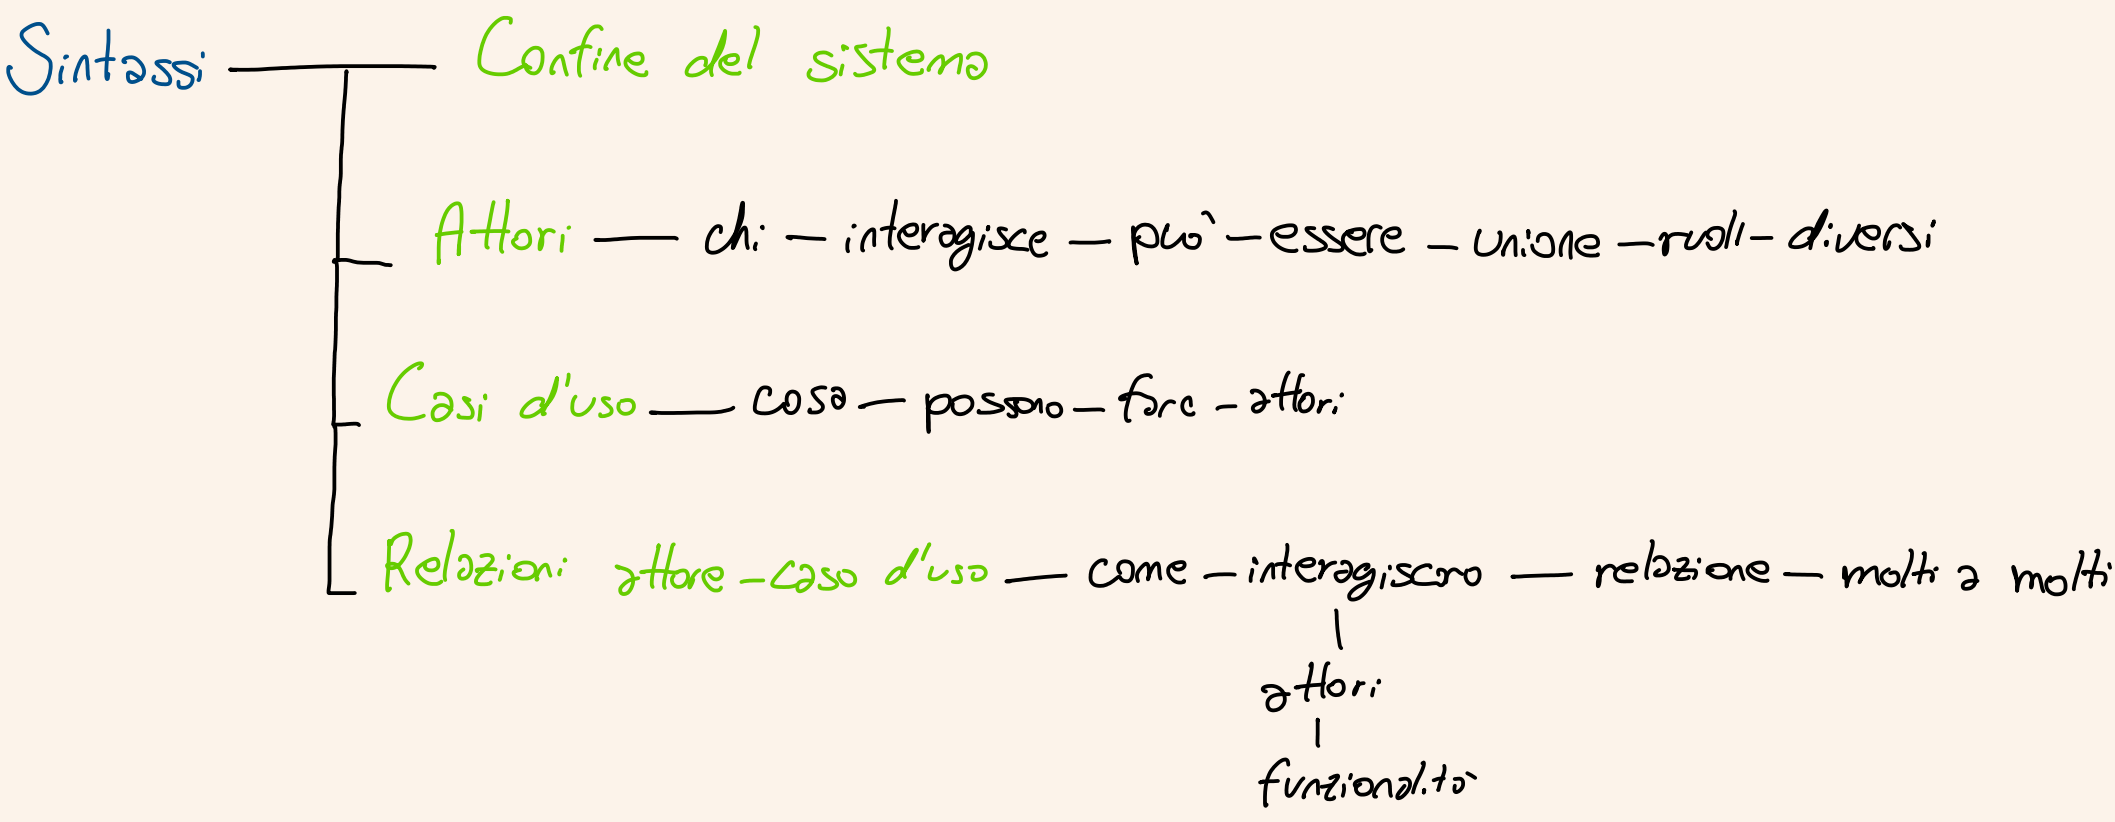 Sintassi — Confine del sistema
Attori — chi — interagisce — può — essere — unione — ruoli — diversi
Casi d'uso — cosa — possono — fare — attori
Relazioni attore-caso d'uso — come — interagiscono — relazione — molti a molti
attori
funzionalità